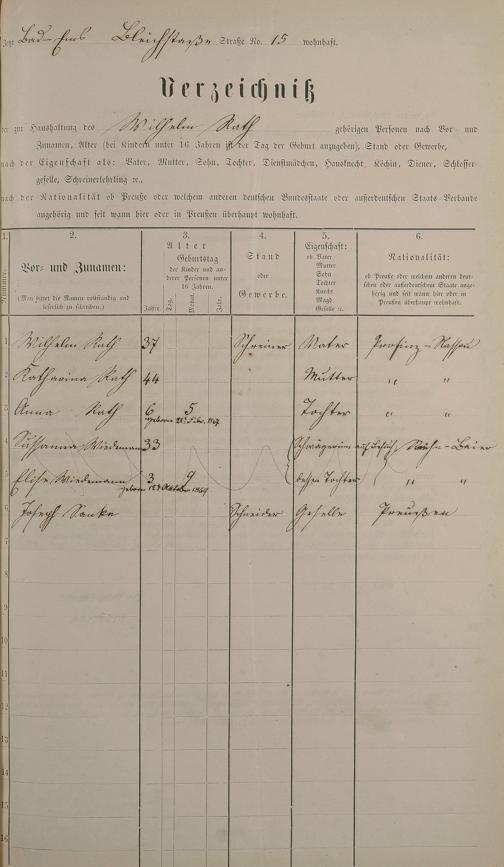 Jetzt Bad-Ems Bleichstaße Straße No. 15 wohnhaft.
Verzeichniß
der zur Haushaltung des Wilhelm Rath gehörigen Personen nach Vor- und
Zunamen, Alter (bei Kindern unter 16 Jahren ist der Tag der Geburt anzugeben), Stand oder Gewerbe,
nach der Eigenschaft als: Vater, Mutter, Sohn, Tochter, Dienstmädchen, Hausknecht, Köchin, Diener, Schlosser-
geselle, Schreinerlehrling ꝛc.,
nach der Nationalität ob Preuße oder welchem anderen deutschen Bundesstaate oder außerdeutschen Staats-Verbande
angehörig und seit wann hier oder in Preußen überhaupt wohnhaft.
1. 2. 3. 4. 5. 6.
Nummer.
Vor- und Zunamen:
(Man bittet die Namen vollständig und
leserlich zu schreiben.)
Alter
Geburtstag
der Kinder und an-
derer Personen unter
16 Jahren.
Jahre. Tag. Monat. Jahr.
Stand
oder
Gewerbe.
Eigenschaft:
ob Vater
Mutter
Sohn
Tochter
Knecht
Magd
Geselle ꝛc.
Nationalität:
ob Preuße oder welchem anderen deut-
schen oder außerdeutschen Staate ange-
hörig und seit wann hier oder in
Preußen überhaupt wohnhaft.
1 Wilhelm Rath 37 Schreiner Vater Profinz-Nassau
2 Katharina Rath 44 Mutter " "
3 Anna Rath 6 5 Tochter " "
geboren
4 Sussanna Wiedemann 33 Schwägerin
5 Elise Wiedemann 3 9 dessen Tochter " "
geboren Oktober 1869
6 Joseph Sanke Schneider Geselle Preußen
7
8
9
10
11
12
13
14
15
16